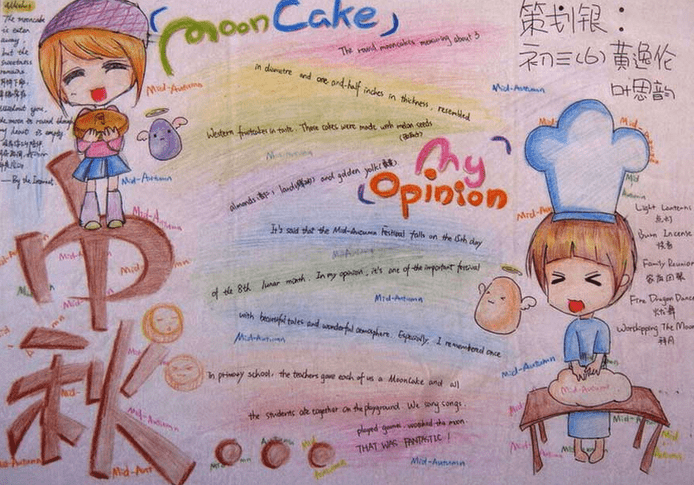 Moon Cake
The round mooncakes measuring about 3
in diametre and one and-half inches in thickness, resembled
Western fruitcakes in taste. These cakes were made with melon seeds
almonds
and golden yolk
My
Opinion
It's said that the Mid-Autumn Festival falls on the 15th day
of the 8th lunar month. In my opinion, it's one of the important festival
with beautiful tales and wonderful atmosphere. Especially, I remembered once
In primary school, the teachers gave each of us a MoonCake and all
the students ate together on the playground. We sang songs,
played games, watched the moon.
THAT WAS FANTASTIC!
The mooncake
is eaten
away,
but the
sweetness
remains
Without you,
the moon is round though
my heart is empty
—By the Internet
中秋
策划银：
初三(6) 黄逸伦
叶思韵
Light Lanterns
点灯
Burn Incense
Family Reunion
家庭团聚
Fire Dragon Dance
Worshipping The Moon
拜月
Mid-Autumn
Mid-Autumn
Mid-Autumn
Mid-Autumn
Mid-Autumn
Mid-Autumn
Mid-Autumn
Mid-Autumn
Mid-Autumn
Mid-Autumn
Mid-Autumn